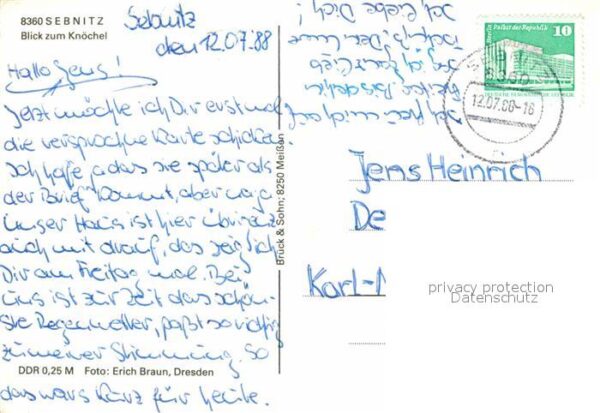 8360 SEBNITZ
Blick zum Knöchel
Sebnitz
den 12.07.88
Hallo Jens!
Jetzt möchte ich Dir erst mal
die versprochne Karte schicken
Ich hoffe, das sie später als
der Brief kommt, aber naja
Unser Haus ist hier übrigens
auch mit drauf, das zeig ich
Dir am Freitag mal. Bei
uns ist zur Zeit das schön-
ste Regenwetter, paßt so richtig
zu meiner Stimmung. So
das wars kurz für heute.
DDR 0,25 M Foto: Erich Braun, Dresden
Bruck & Sohn; 8250 Meißen
Ich freu mich auf
Freitag
Ich liebe Dich!
Berlin, Palast der Republik
10
8360
12.07.88-16
Jens Heinrich
De
Karl-M
privacy protection
Datenschutz